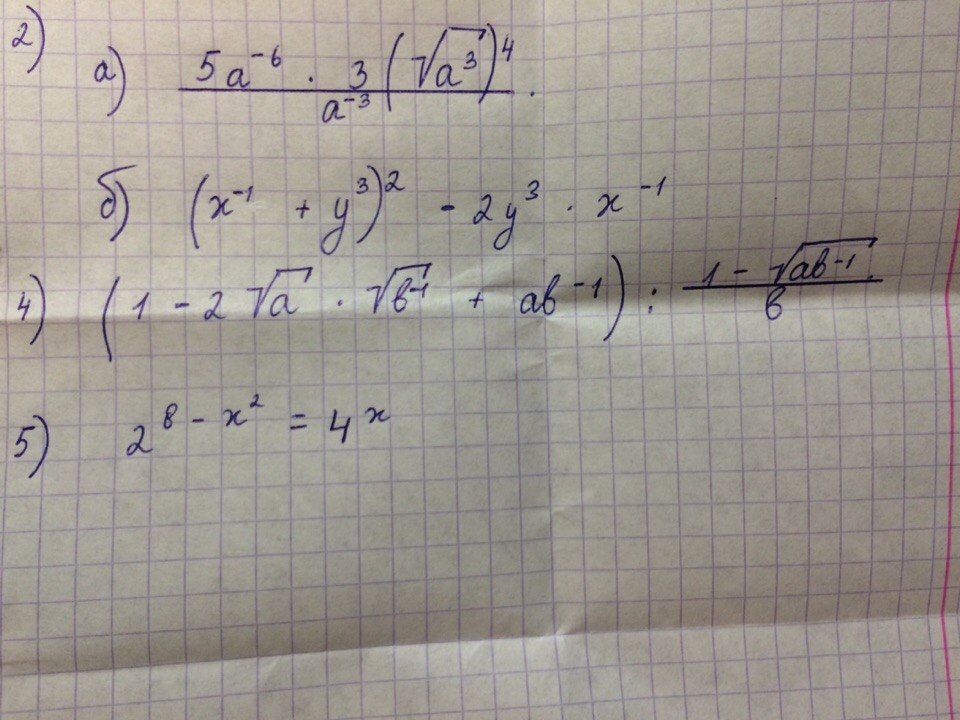 2) а) \frac{5a^{-6} \cdot 3(\sqrt{a^3})^4}{a^{-3}}.
б) (x^{-1} + y^3)^2 - 2y^3 \cdot x^{-1}
4) (1 - 2\sqrt{a} \cdot \sqrt{в^{-1}} + ав^{-1}) : \frac{1 - \sqrt{ав^{-1}}}{в}
5) 2^{8 - x^2} = 4^x